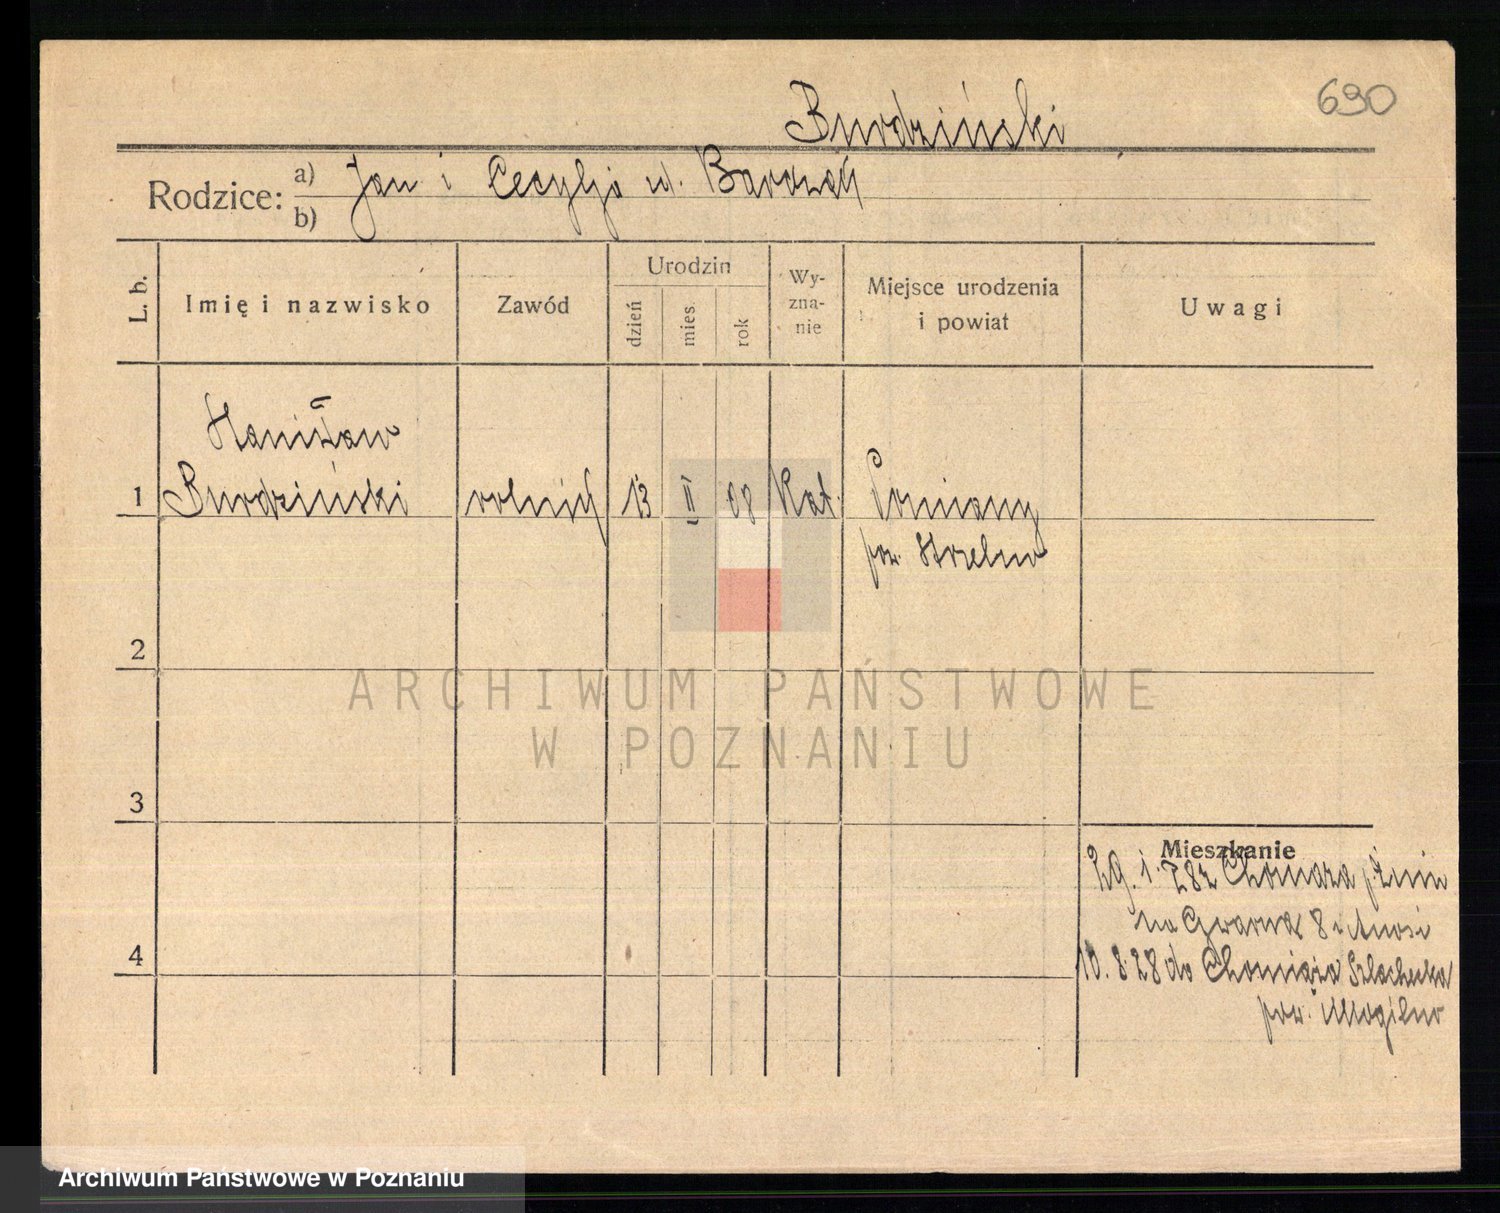 690
Burdziński
Rodzice: a) Jan i Cecylja ur. Bardzań
b)
L. b.
Imię i nazwisko
Zawód
Urodzin
dzień
mies.
rok
Wy-
zna-
nie
Miejsce urodzenia
i powiat
Uwagi
Stanisław
1 Burdziński rolnik 13 II 08 Kat. Pomiany
pow. Strzelno
2
3
4
Mieszkanie
Zg. 1. 7 82 Chomąża p. Żnin
na Gwarna 8 i
10. 8 28 do Chomiąża Szlachecka
pow. Mogilno
ARCHIWUM PAŃSTWOWE
W POZNANIU
Archiwum Państwowe w Poznaniu